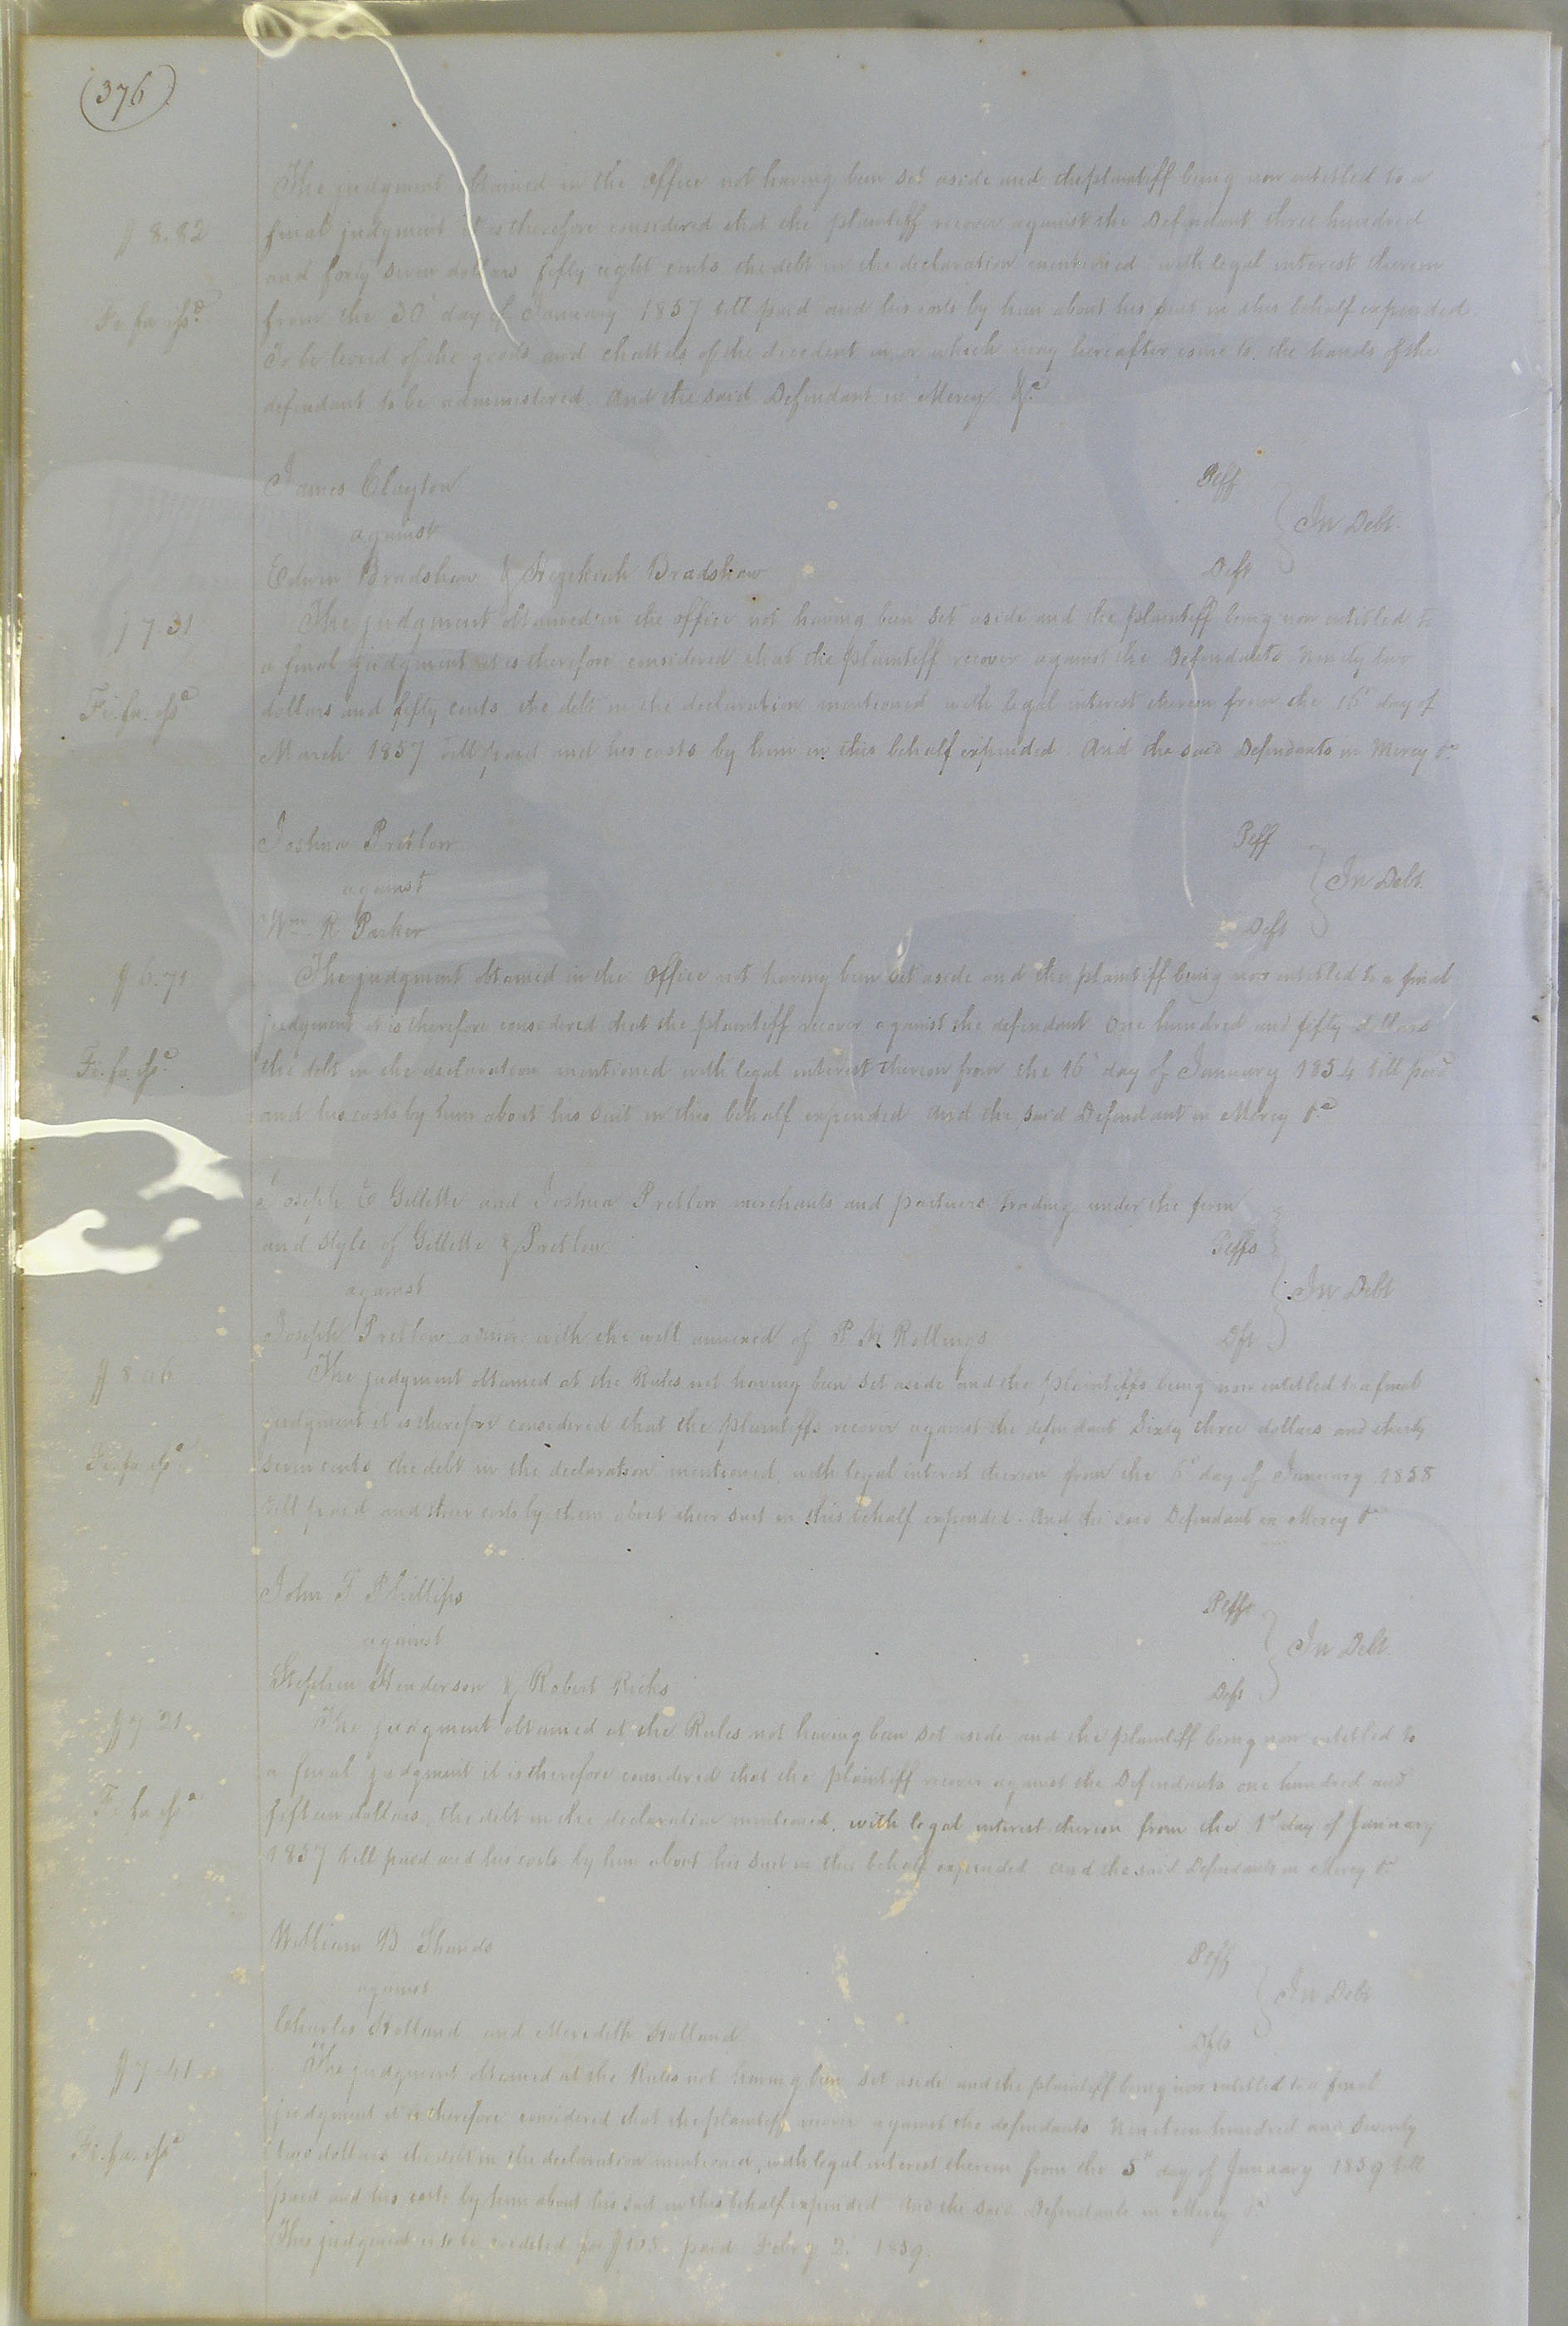 (376)
The judgment obtained in the office not having been set aside and the plaintiff being now entitled to a
$ 8.82
final judgment it is therefore considered that the plaintiff recover against the Defendant three hundred
and forty seven dollars fifty eight cents the debt in the declaration mentioned with legal interest thereon
Fi. fa. issd
from the 30 day of January 1857 till paid and his costs by him about his suit in this behalf expended
To be levied of the goods and chattels of the decedent in, or which may hereafter come to, the hands of the
defendant to be administered. And the said Defendant in Mercy &c
James Clayton Plff
against In Debt.
Edwin Bradshaw & Hezekiah Bradshaw Deft
The judgment obtained in the office not having been set aside and the plaintiff being now entitled to
$ 7.31
a final judgment it is therefore considered that the plaintiff recover against the Defendants Ninety two
dollars and fifty cents the debt in the declaration mentioned with legal interest thereon from the 16 day of
Fi. fa. issd
March 1857 till paid and his costs by him in this behalf expended. And the said Defendants in Mercy &c
Joshua Pretlow Plff
against In Debt.
Wm R Parker Deft
The judgment obtained in the office not having been set aside and the plaintiff being now entitled to a final
$ 6.71
judgment it is therefore considered that the plaintiff recover against the defendant One hundred and fifty dollars
the debt in the declaration mentioned with legal interest thereon from the 16 day of January 1854 till paid
Fi. fa. issd
and his costs by him about his suit in this behalf expended And the said Defendant in Mercy &c
Joseph E Gillette and Joshua Pretlow merchants and partners trading under the firm
and style of Gillette & Pretlow Plffs
against In Debt
Joseph Pretlow admr with the will annexed of P Rollings Dft
The judgment obtained at the Rules not having been set aside and the plaintiffs being now entitled to a final
judgment it is therefore considered that the plaintiffs recover against the defendant Sixty three dollars and thirty
Fi. fa. issd
seven cents the debt in the declaration mentioned, with legal interest thereon from the 6 day of January 1858
till paid and their costs by them about their suit in this behalf expended. And the said Defendant in Mercy &c
John F Phillips Plff
against In Debt.
Stephen Henderson & Robert Ricks Defts
The judgment obtained at the Rules not having been set aside and the plaintiff being now entitled to
$ 7.21
a final judgment it is therefore considered that the plaintiff recover against the Defendants one hundred and
fifteen dollars, the debt in the declaration mentioned, with legal interest thereon from the 1st day of January
Fi. fa. issd
1857 till paid and his costs by him about his suit in this behalf expended and the said Defendants in Mercy &c
William B Shands Plff
against In Debt
Charles Holland and Meredith Holland Dfts
The judgment obtained at the Rules not having been set aside and the plaintiff being now entitled to a final
$ 7.41
judgment it is therefore considered that the plaintiff recover against the defendants Nineteen hundred and twenty
two dollars the debt in the declaration mentioned, with legal interest thereon from the 5th day of January 1859 till
Fi. fa. issd
paid and his costs by him about his suit in this behalf expended And the said Defendants in Mercy &c
This judgment is to be credited for $105. paid Feby 2. 1859.